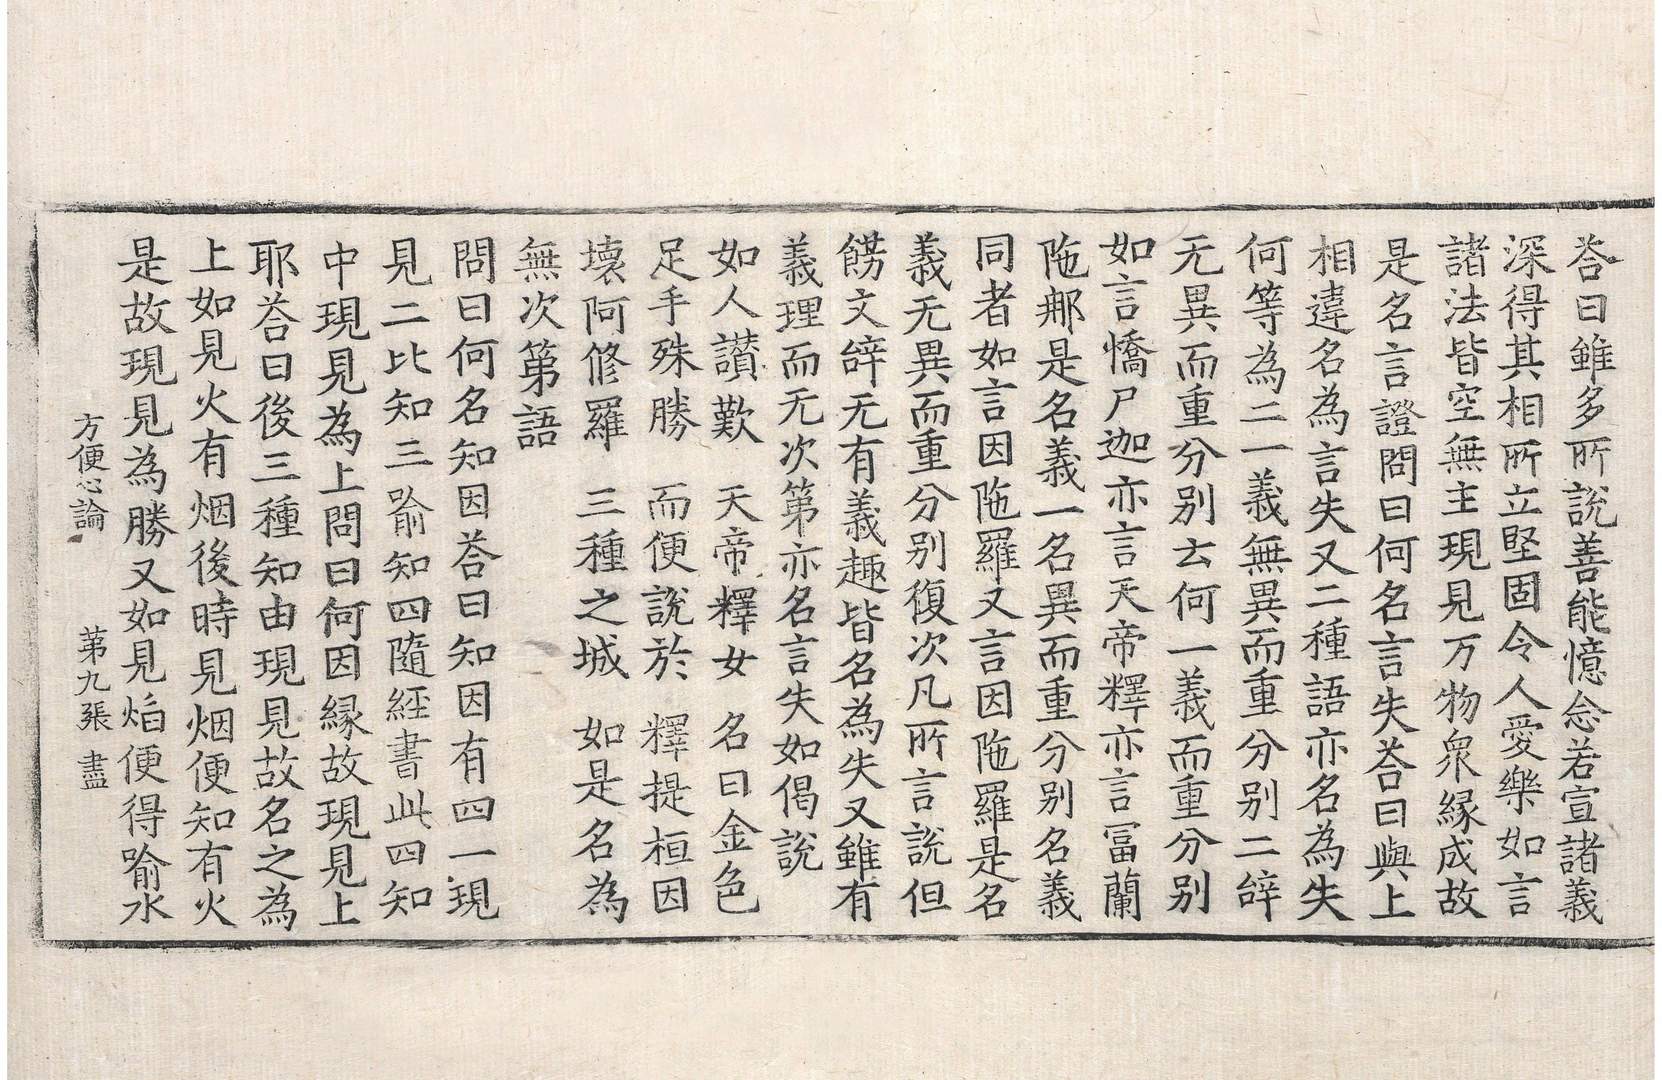 荅曰雖多所說善能憶念若宣諸義
深得其相所立堅固令人愛樂如言
諸法皆空無主現見万物衆縁成故
是名言證問曰何名言失荅曰與上
相違名為言失又二種語亦名為失
何等為二一義無異而重分别二辝
无異而重分别云何一義而重分别
如言憍尸迦亦言天帝釋亦言冨蘭
陁𨙻是名義一名異而重分别名義
同者如言因陁羅又言因陁羅是名
義无異而重分别復次凡所言說但
餝文辝无有義趣皆名為失又雖有
義理而无次第亦名言失如偈說
如人讃歎　天帝釋女　名曰金色
足手殊勝　而便說於　釋提桓因
壊阿修羅　三種之城　如是名為
無次第語
問曰何名知因荅曰知因有四一現
見二比知三喻知四隨經書此四知
中現見為上問曰何因縁故現見上
耶荅曰後三種知由現見故名之為
上如見火有烟後時見烟便知有火
是故現見為勝又如見焰便得喻水
方便心論　第九張　盡